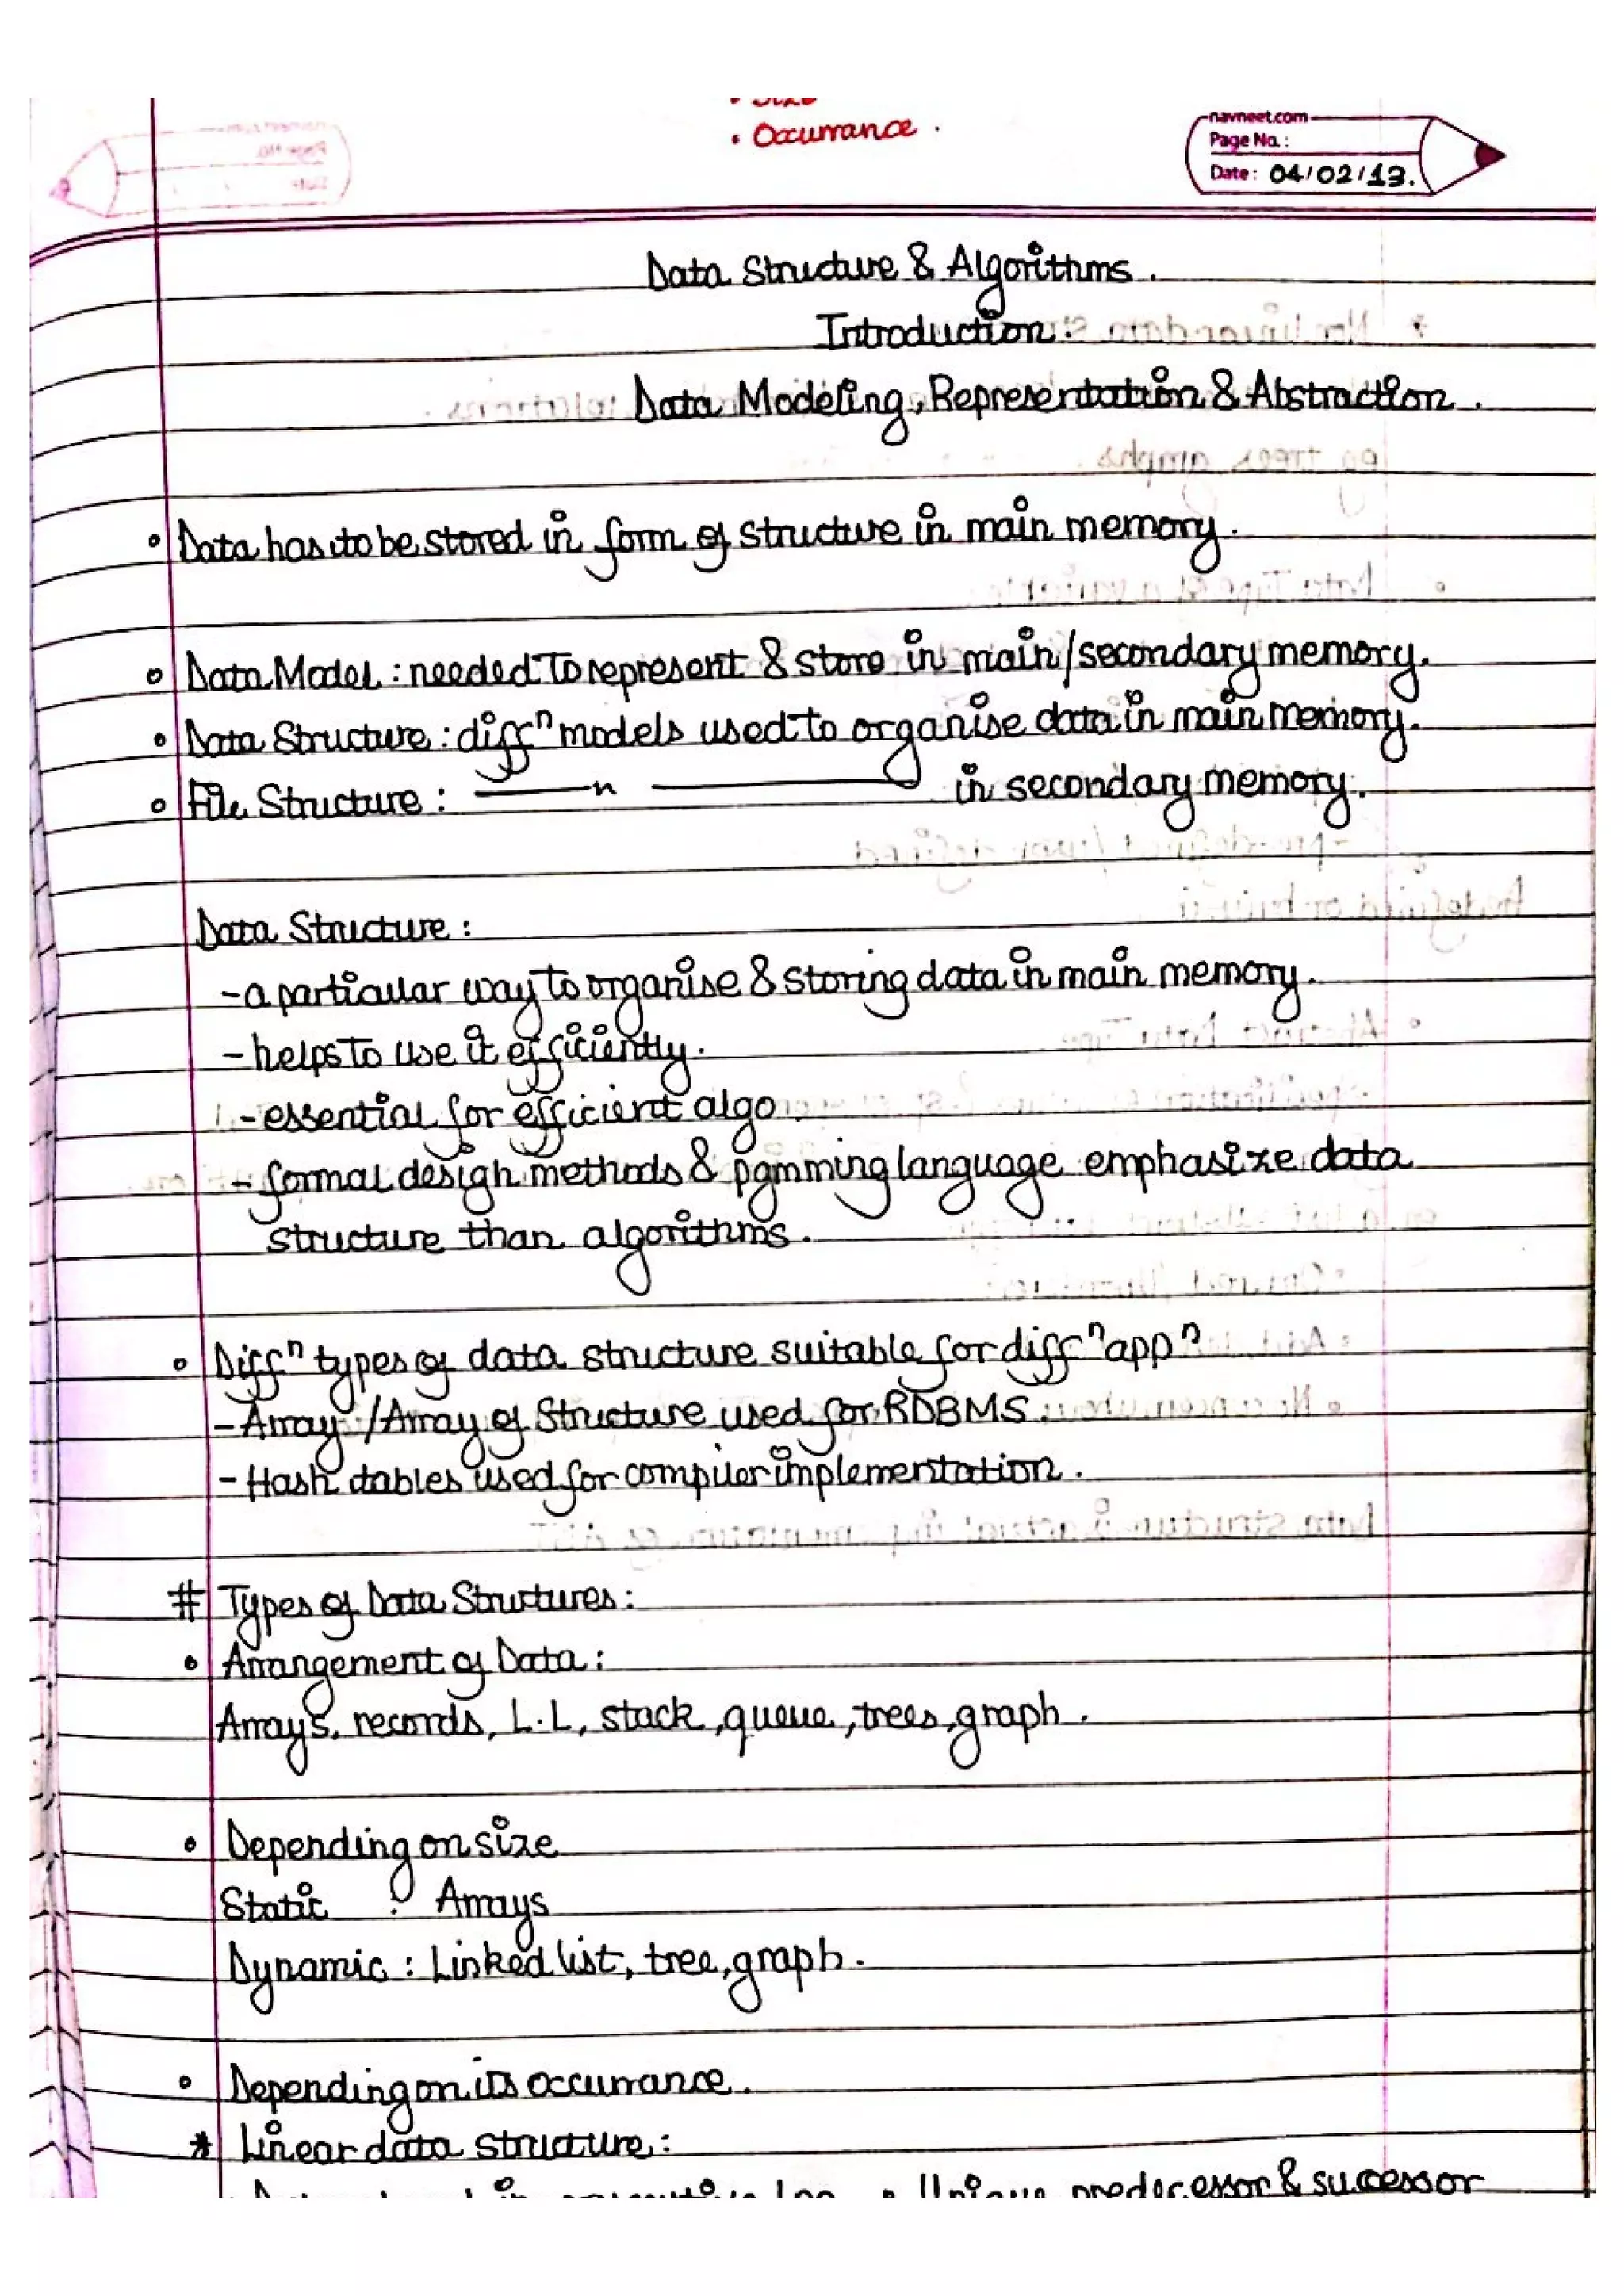 • Occurrance.
navneet.com
Page No.:
Date: 04/02/13.
Data Structure & Algorithms.
Introduction:
Data Modeling, Representation & Abstraction.
• Data has to be stored in form of structure in main memory.
• Data Model: needed to represent & store in main/secondary memory.
• Data Structure: diffn models used to organise data in main memory.
• File Structure: —— n —— in secondary memory.
Data Structure:
- a particular way to organise & storing data in main memory.
- helps to use it efficiently.
- essential for efficient algo
- formal design methods & pgmming language emphasize data
structure than algorithms.
• Diffn types of data structure suitable for diffn appn
- Array / Array of Structure used for RDBMS.
- Hash tables used for compiler implementation.
# Types of Data Structures:
• Arrangement of Data:
Arrays, records, L.L, stack, queue, trees, graph.
• Depending on size
Static : Arrays
Dynamic : Linked list, tree, graph.
• Depending on its occurrance.
* Linear data structure:
• Unique predecessor & sucessor